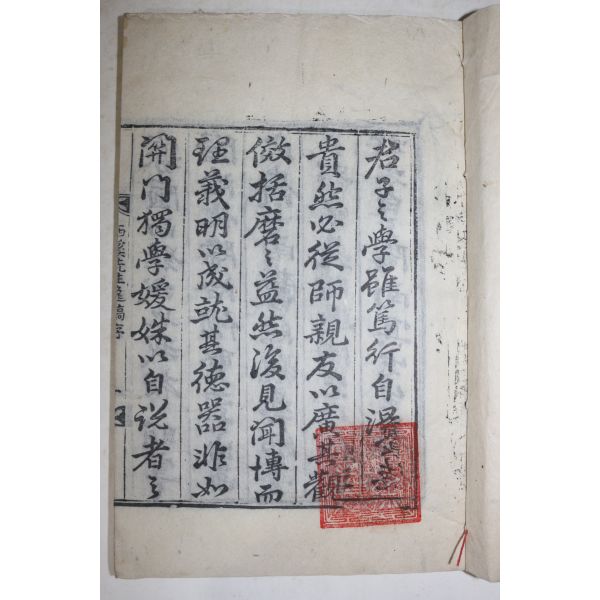 君子之學雖篤行自得之
貴然必從師親友以廣其觀
儆括磨之益然後見聞博而
理義明以成就其德器非如
閉門獨學媛姝以自說者之
西溪先生遺稿序